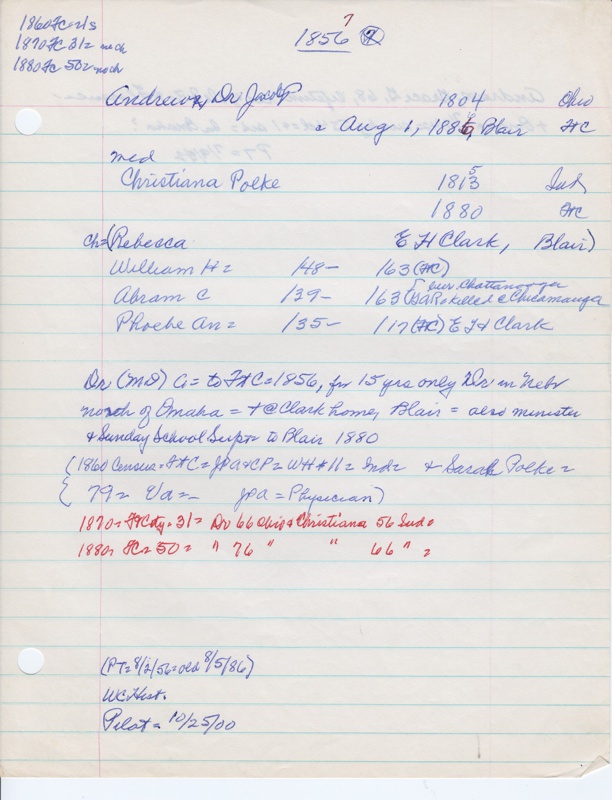 1860 FC = 1/s
1870 FC 31 = nech
1880 FC 50 = noch
7
1856 7
Andrews, Dr Jacob P 1804 Ohio
= Aug 1, 1885, Blair FC
med
Christiana Polke 1813 5 Ind
1880 FC
ch= (Rebecca E H Clark, Blair)
William H = 148- 163 (FC)
Abram C 139- 163 ( Chattanooga
killed @ Chicamauga
Phoebe An = 135- 117 (FC) E H Clark
Dr (MD) G = to FtC = 1856, for 15 yrs only Dr in Nebr
north of Omaha = + @ Clark home, Blair = also minister
& Sunday School Supt = to Blair 1880
(1860 Census = FtC = JPA & CP = WH # 11 = Ind = & Sarah Polke =
79 = Va = - JPA = Physician)
1870 = FtCy = 31 = Dr 66 Ohio & Christiana 56 Ind =
1880 = FC = 50 = " 76 " " 66 " =
(PT = 8/2/56 = old 8/5/86)
WC Hist.
Pilot = 10/25/00